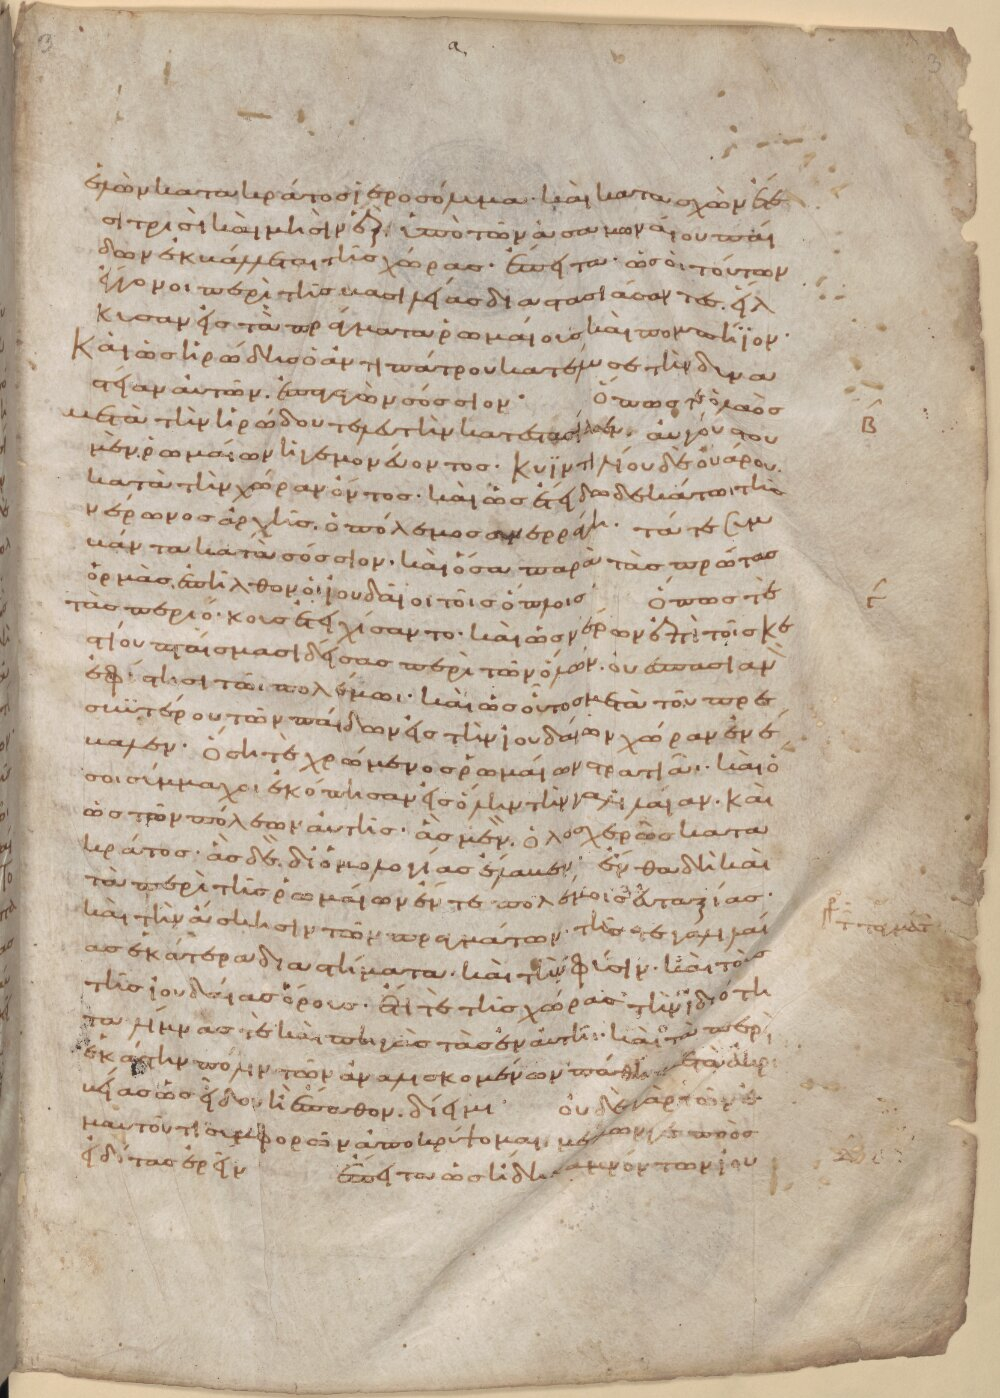 α
ἑλὼν κατὰ κράτος ἱεροσόλυμα· καὶ κατασχὼν ἔτε
σι τρισὶ καὶ μησὶν ἕξ. ὑπὸ τῶν ἀσαμωναίου παί
δων ἐκβάλλεται τῆς χώρας. ἔπειτα· ὡς οἱ τούτων
ἔγγονοι περὶ τῆς βασιλείας διαστασιάσαντες. εἵλ
κυσαν εἰς τὰ πράγματα ῥωμαίους καὶ πομπήϊον·
Καὶ ὡς ἡρώδης ὁ ἀντιπάτρου κατέλυσε τὴν δυνα
στείαν αὐτῶν. ἐπαγαγὼν σόσσιον· Ὅπως τε ὁ λαὸς
μετὰ τὴν ἡρώδου τελευτὴν κατεστασίασεν. αὐγούστου
μὲν ῥωμαίων ἡγεμονεύοντος. κυϊντιλίου δὲ οὐάρου.
κατὰ τὴν χώραν ὄντος· καὶ ὡς ἔτει δωδεκάτωι τῆς
νέρωνος ἀρχῆς. ὁ πόλεμος ἀνερράγη. τά τε συμ
βάντα κατὰ σόσσιον· καὶ ὅσα παρὰ τὰς πρώτας
ὁρμὰς ἐπῆλθον οἱ ἰουδαῖοι τοῖς ὅπλοις· ὅπως τε
τὰς περιοίκους ἐτειχίσαντο· καὶ ὡς νέρων ἐπὶ τοῖς κε
στίου πταίσμασι δείσας περὶ τῶν ὅλων. οὐεσπασιανὸν
ἐφίστησι τῶι πολέμωι· καὶ ὡς οὗτος μετὰ τοῦ πρε
σβυτέρου τῶν παίδων εἰς τὴν ἰουδαίων χώραν ἐνέ
βαλεν· Ὅσῃ τε χρώμενος ῥωμαίων στρατιᾶι· καὶ ὅ
σοι σύμμαχοι ἐκόπησαν εἰς ὅλην τὴν γαλιλαίαν· καὶ
ὡς τῶν πόλεων αὐτῆς· ἃς μὲν. ὁλοσχερῶς κατὰ
κράτος· ἃς δὲ. δι' ὁμολογίας ἔλαβεν· ἔνθα δὴ καὶ
τὰ περὶ τῆς ῥωμαίων ἔν τε πολέμοις εὐταξίας·
καὶ τὴν ἄσκησιν τῶν πραγμάτων· τῆς τε γαλιλαί
ας ἑκάτερα διαστήματα· καὶ τὴν φύσιν· καὶ τοὺς
τῆς ἰουδαίας ὅρους· ἔτι τε τῆς χώρας τὴν ἰδιότη
τα λίμνας τε καὶ πηγὰς τὰς ἐν αὐτῆι· καὶ τὰ περὶ
ἑκάστην πόλιν τῶν ἁλισκομένων πάθη μετὰ ἀκρι
βείας ὡς εἶδον ἢ ἔπαθον. δίειμι· οὐδὲ γὰρ τῶν ἐ
μαυτοῦ τι συμφορῶν ἀποκρύψομαι μέλλων γε πρὸς
εἰδότας ἐρεῖν ἔπειτα ὡς ἤδη καμνόντων ἰου